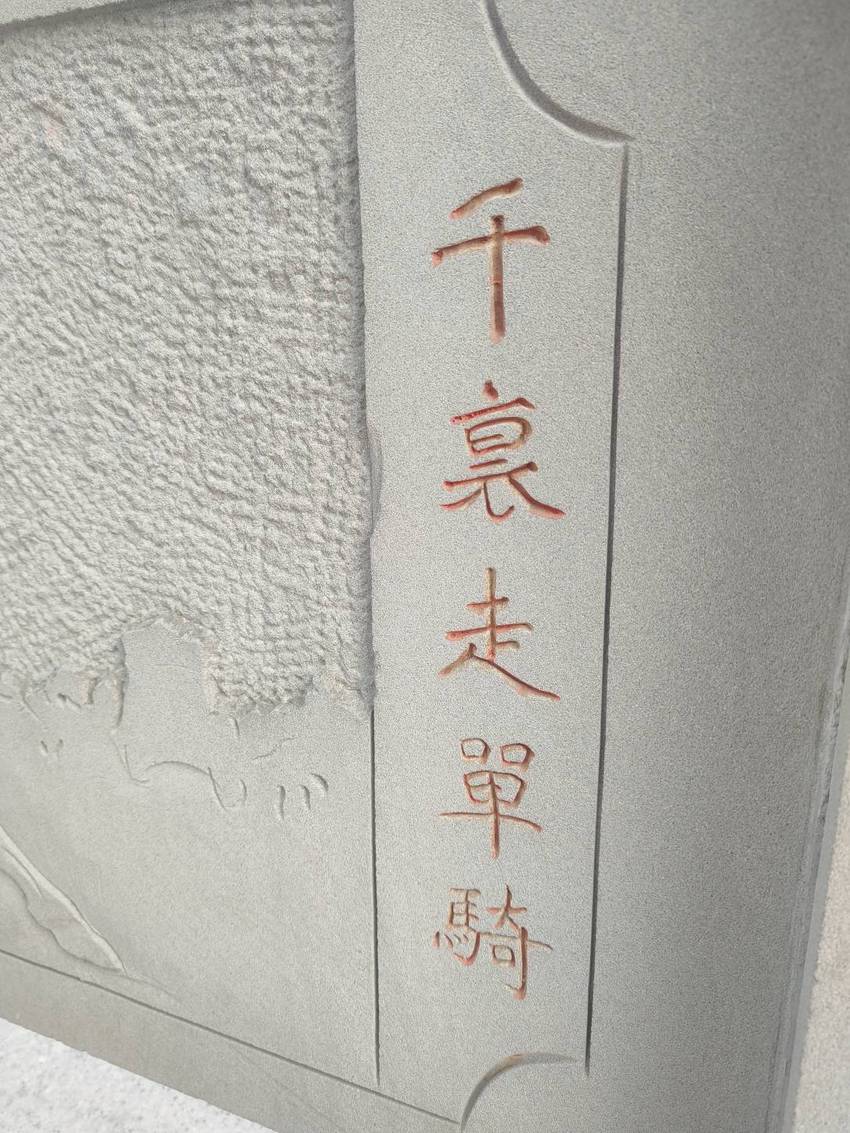 千裏走單騎